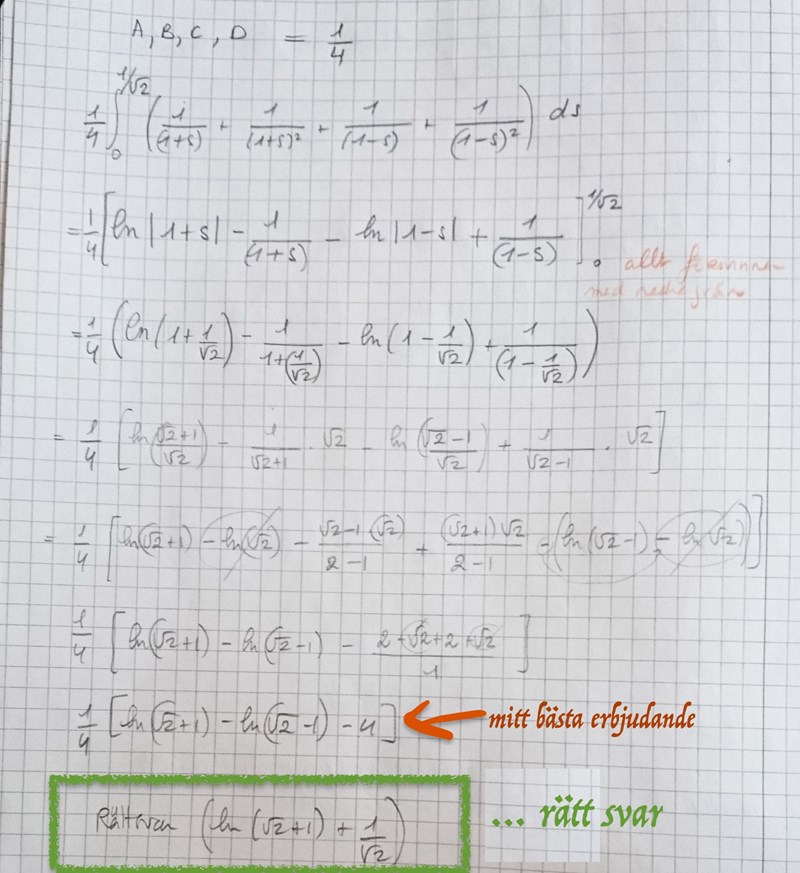 A, B, C, D = 1/4
1/4 ∫₀^(1/√2) (1/(1+s) + 1/(1+s)² + 1/(1-s) + 1/(1-s)²) ds
= 1/4 [ln |1+s| - 1/(1+s) - ln |1-s| + 1/(1-s)]₀^(1/√2)
allt
med
= 1/4 (ln(1+1/√2) - 1/(1+(1/√2)) - ln(1-1/√2) + 1/(1-1/√2))
= 1/4 [ln((√2+1)/(√2)) - 1/(√2+1) · √2 - ln((√2-1)/√2) + 1/(√2-1) · √2]
= 1/4 [ln(√2+1) - ln(√2) - (√2-1 (√2))/(2-1) + ((√2+1)√2)/(2-1) - (ln(√2-1) - ln(√2))]
1/4 [ln(√2+1) - ln(√2-1) - (2-√2+2+√2)/1]
1/4 [ln(√2+1) - ln(√2-1) - 4] mitt bästa erbjudande
(ln(√2+1) + 1/√2) ... rätt svar